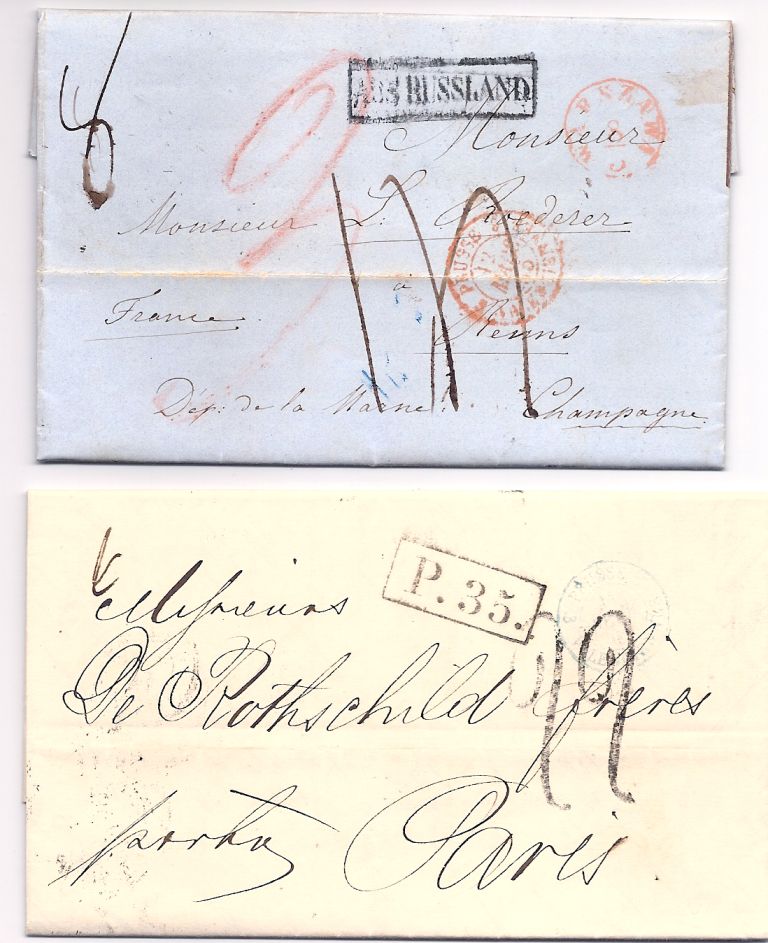 AUS RUSSLAND
Monsieur
Monsieur L. Roederer
à
France Reims
Dép. de la Marne. Champagne.
P. 35.
Messieurs
De Rothschild frères
22
porto Paris